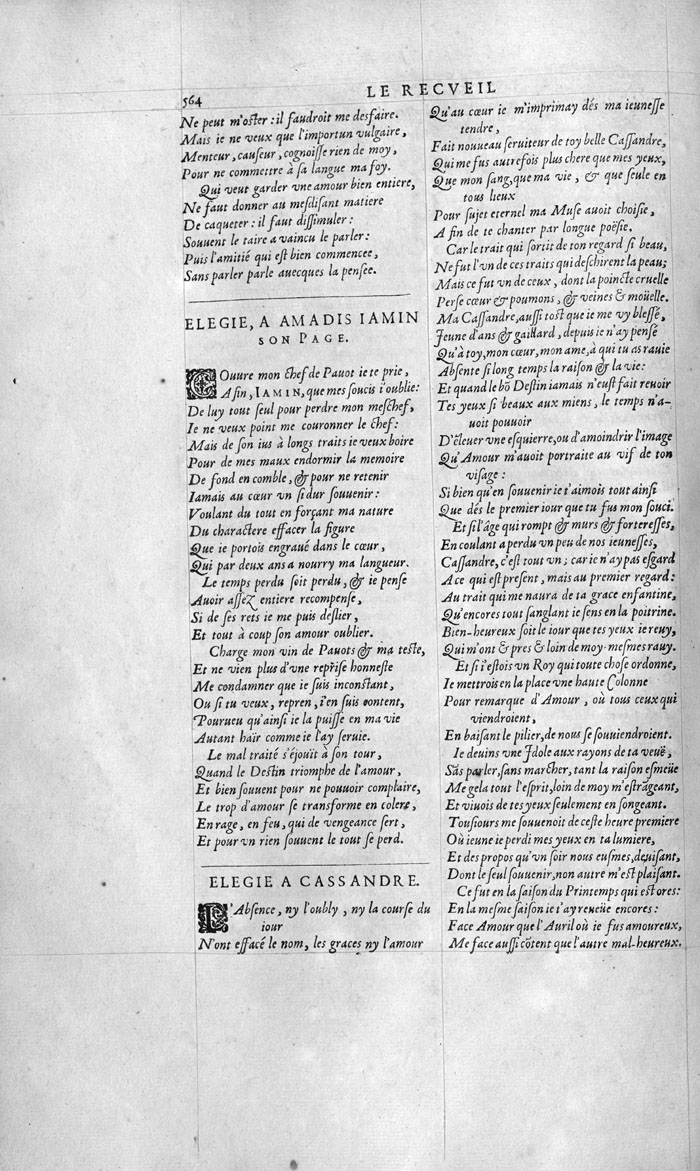 564
LE RECVEIL
Ne peut m'oster: il faudroit me desfaire.
Mais ie ne veux que l'importun vulgaire,
Menteur, causeur, cognoisse rien de moy,
Pour ne commettre à sa langue ma foy.
Qui veut garder vne amour bien entiere,
Ne faut donner au mesdisant matiere
De caqueter: il faut dissimuler:
Souuent le taire a vaincu le parler:
Puis l'amitié qui est bien commencee,
Sans parler parle auecques la pensee.
ELEGIE, A AMADIS IAMIN
SON PAGE.
COuure mon chef de Pauot ie te prie,
Afin, IAMIN, que mes soucis i'oublie:
De luy tout seul pour perdre mon meschef,
Ie ne veux point me couronner le chef:
Mais de son ius à longs traits ie veux boire
Pour de mes maux endormir la memoire
De fond en comble, & pour ne retenir
Iamais au cœur vn si dur souuenir:
Voulant du tout en forçant ma nature
Du charactere effacer la figure
Que ie portois engraué dans le cœur,
Qui par deux ans a nourry ma langueur.
Le temps perdu soit perdu, & ie pense
Auoir assez entiere recompense,
Si de ses rets ie me puis deslier,
Et tout à coup son amour oublier.
Charge mon vin de Pauots & ma teste,
Et ne vien plus d'vne reprise honneste
Me condamner que ie suis inconstant,
Ou si tu veux, repren, i'en suis content,
Pourueu qu'ainsi ie la puisse en ma vie
Autant haïr comme ie l'ay seruie.
Le mal traité s'éjouït à son tour,
Quand le Destin triomphe de l'amour,
Et bien souuent pour ne pouuoir complaire,
Le trop d'amour se transforme en colere,
En rage, en feu, qui de vengeance sert,
Et pour vn rien souuent le tout se perd.
ELEGIE A CASSANDRE.
L'Absence, ny l'oubly, ny la course du
iour
N'ont effacé le nom, les graces ny l'amour
Qu'au cœur ie m'imprimay dés ma ieunesse
tendre,
Fait nouueau seruiteur de toy belle Cassandre,
Qui me fus autrefois plus chere que mes yeux,
Que mon sang, que ma vie, & que seule en
tous lieux
Pour sujet eternel ma Muse auoit choisie,
A fin de te chanter par longue poësie.
Car le trait qui sortit de ton regard si beau,
Ne fut l'vn de ces traits qui deschirent la peau;
Mais ce fut vn de ceux, dont la poincte cruelle
Perse cœur & poumons, & veines & moüelle.
Ma Cassandre, aussi tost que ie me vy blessé,
Jeune d'ans & gaillard, depuis ie n'ay pensé
Qu'à toy, mon cœur, mon ame, à qui tu as rauie
Absente si long temps la raison & la vie:
Et quand le bõ Destin iamais n'eust fait reuoir
Tes yeux si beaux aux miens, le temps n'a-
uoit pouuoir
D'éleuer vne esquierre, ou d'amoindrir l'image
Qu'Amour m'auoit portraite au vif de ton
visage:
Si bien qu'en souuenir ie t'aimois tout ainsi
Que dés le premier iour que tu fus mon souci.
Et si l'âge qui rompt & murs & forteresses,
En coulant a perdu vn peu de nos ieunesses,
Cassandre, c'est tout vn; car ie n'ay pas esgard
A ce qui est present, mais au premier regard:
Au trait qui me naura de ta grace enfantine,
Qu'encores tout sanglant ie sens en la poitrine.
Bien-heureux soit le iour que tes yeux ie reuy,
Qui m'ont & pres & loin de moy-mesmes rauy.
Et si i'estois vn Roy qui toute chose ordonne,
Ie mettrois en la place vne haute Colonne
Pour remarque d'Amour, où tous ceux qui
viendroient,
En baisant le pilier, de nous se souuiendroient.
Ie deuins vne Jdole aux rayons de ta veuë,
Sãs parler, sans marcher, tant la raison esmeüe
Me gela tout l'esprit, loin de moy m'estrãgeant,
Et viuois de tes yeux seulement en songeant.
Tousiours me souuenoit de ceste heure premiere
Où ieune ie perdi mes yeux en ta lumiere,
Et des propos qu'vn soir nous eusmes, deuisant,
Dont le seul souuenir, non autre m'est plaisant.
Ce fut en la saison du Printemps qui est ores:
En la mesme saison ie t'ay reueüe encores:
Face Amour que l'Auril où ie fus amoureux,
Me face aussi cõtent que l'autre mal-heureux.